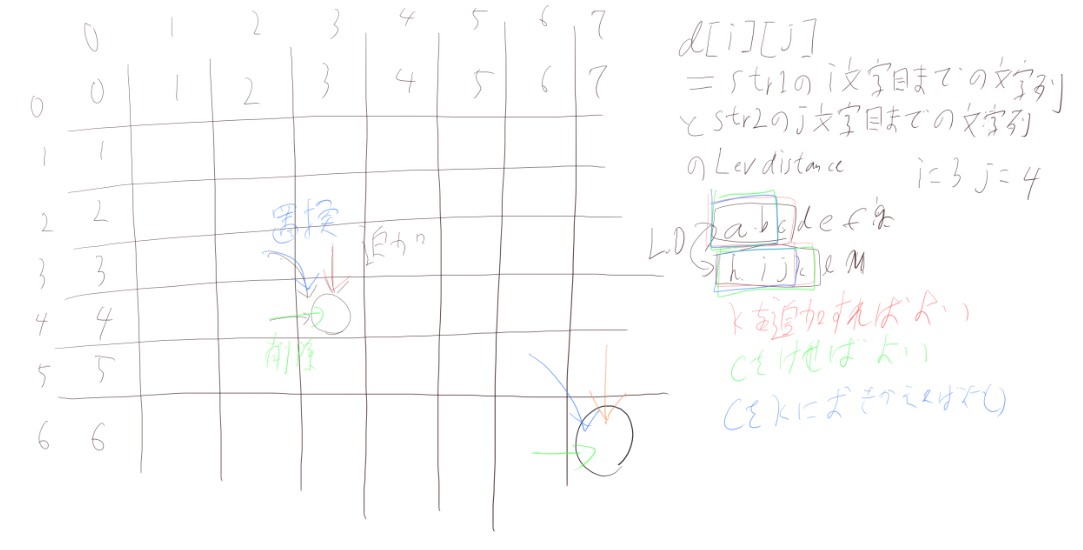 0 1 2 3 4 5 6 7
0 0 1 2 3 4 5 6 7
1 1
2 2
3 3
4 4
5 5
6 6
置換
追加
削除
d[i][j]
=str1のi文字目までの文字列
とstr2のj文字目までの文字列
のLev distance
i=3 j=4
L.D
abcdefg
hijklm
kを追加すればよい
cをけせばよい
cをkにおきかえればよい